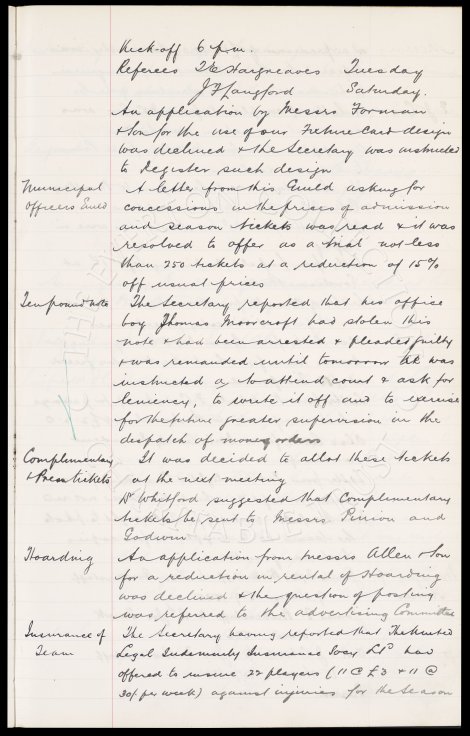 Kick-off 6 p.m.
Referees T H Hargreaves Tuesday
J T Langford Saturday.
An application by Messrs Forman
& Son for the use of our Fixture Card design
was declined & the Secretary was instructed
to Register such design
Municipal Officers Guild
A letter from this Guild asking for
concessions in the prices of admission
and season tickets was read & it was
resolved to offer as a trial not less
than 250 tickets at a reduction of 15%
off usual prices
Ten pound note
The Secretary reported that his office
boy Thomas Moorcroft had stolen this
note & had been arrested & pleaded guilty
& was remanded until tomorrow He was
instructed to attend court & ask for
leniency, to write it off and to exercise
for the future greater supervision in the
dispatch of money orders
Complimentary & Press tickets
It was decided to allot these tickets
at the next meeting
Dr Whitford suggested that Complimentary
tickets be sent to Messrs Pinion and
Godwin
Hoarding
An application from Messrs Allen & Son
for a reduction in rental of Hoarding
was declined & the question of posting
was referred to the advertising Committee
Insurance of Team
The Secretary having reported that The United
Legal Indemnity Insurance Socy Ld had
offered to insure 22 players (11 @ £3 & 11 @
30/- per week) against injuries for the Season